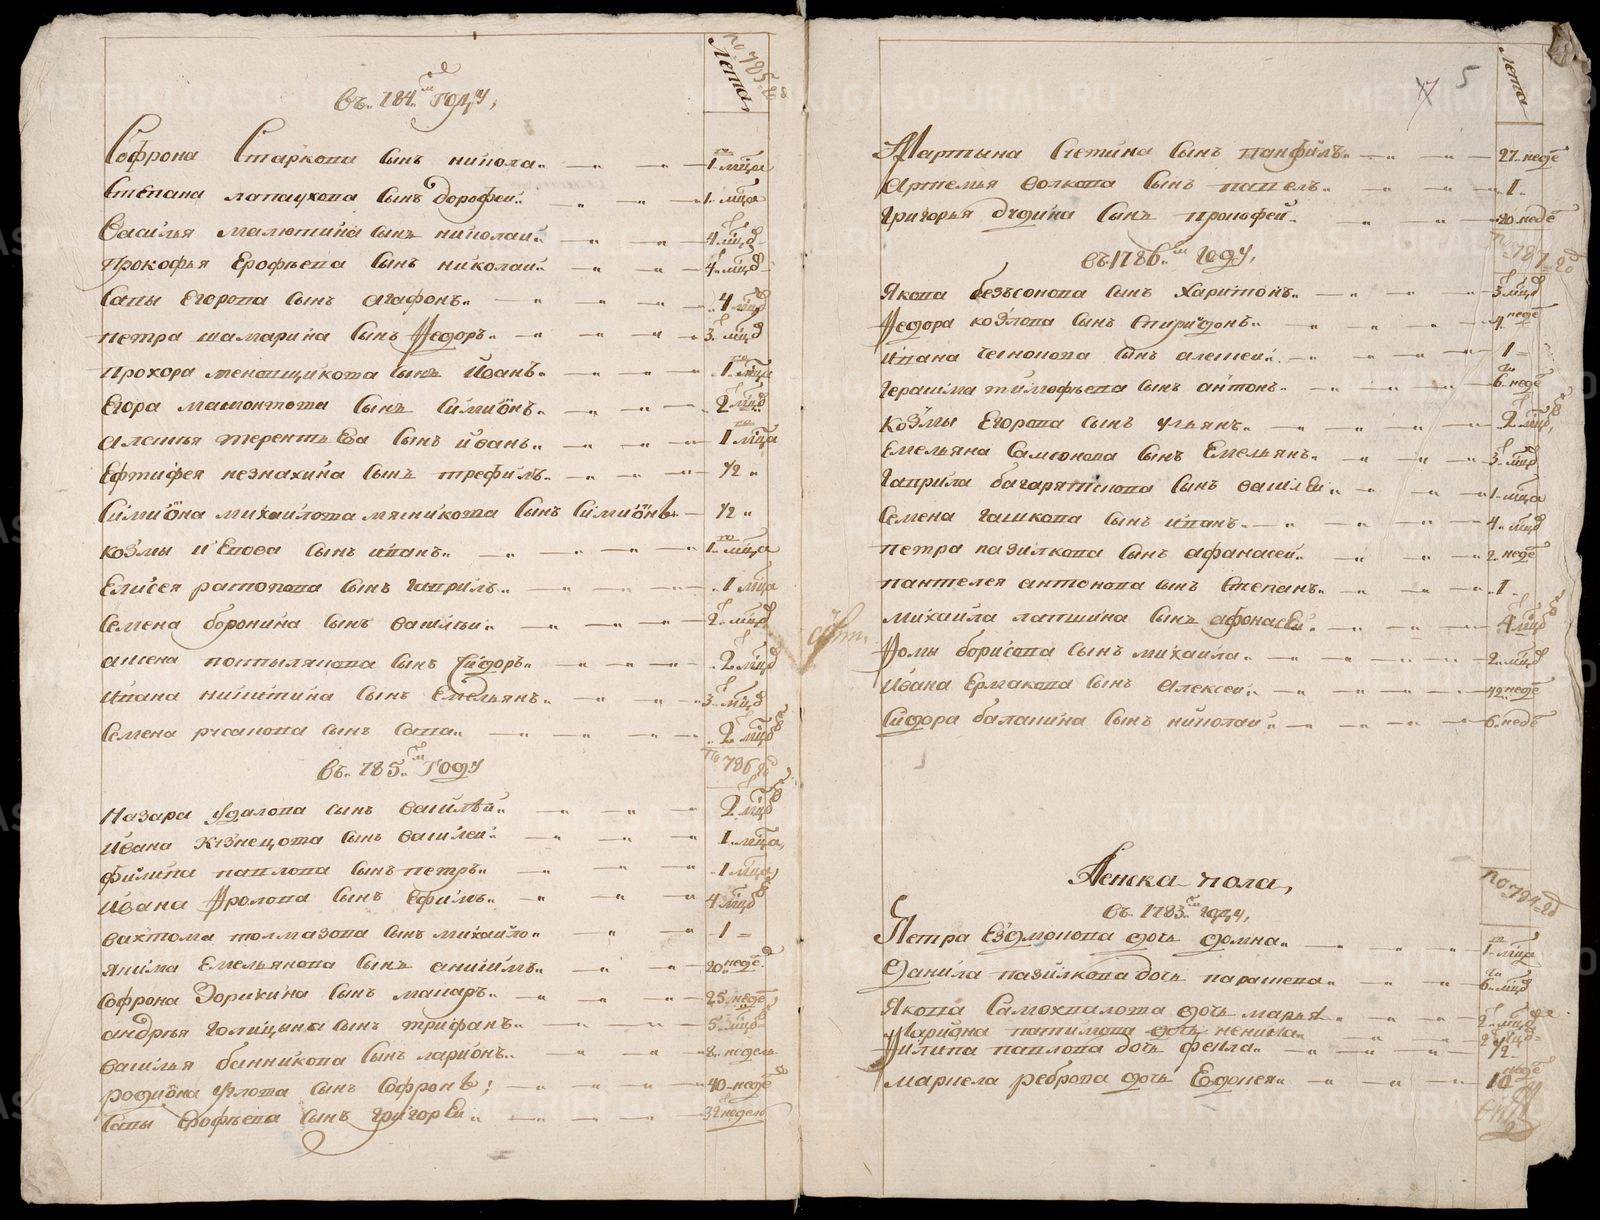 въ 784м году,
по 785 го
Лета
Софрона Старкова сынъ никола 1 мца
Степана лапаухова сынъ дорофеи 1 мца
Василья малютина сынъ николаи 4 мцд
Прокофья Ерофеева сынъ николаи 4 мцд
Савы Егорова сынъ агафонъ 4 мцд
петра шамарина сынъ Федоръ 3 мцд
прохора меншикова сынъ иванъ 1 мца
Егора мамонтова сынъ симионъ 2 мцд
алексья терентьева сынъ иванъ 1 мца
Ефтифея незнахина сынъ трефилъ 1/2
Симиона михаилова мясникова сынъ симионъ 1/2
козмы сынъ иванъ 1 мца
Елисея сынъ гаврилъ 1 мца
Семена боронина сынъ василеи 2 мцд
сынъ сидоръ 2 мцд
ивана никитина сынъ Емельянъ 3 мцд
Семена русанова сынъ сава 2 мцд
въ 785м году
по 786 го
Назара удалова сынъ василеи 2 мцд
ивана кузнецова сынъ василеи 1 мца
филипа павлова сынъ петръ 1 мца
ивана Фролова сынъ Ефимъ 4 мцд
толмазова сынъ михаило 1
якима Емельянова сынъ анисимъ 20 неде
Софрона Зорихина сынъ макаръ 25 неде
андрея голицына сынъ трифанъ 5 мцд
василья банникова сынъ ларионъ 8 недель
родиона углова сынъ Софронъ 40 неде
Савы Ерофеева сынъ григореи 32 недели
5
Лета
Мартына Счетина сынъ панфилъ 27 неде
артемья волкова сынъ павелъ 1
григорья дудина сынъ прокофеи 20 неде
въ 1786м году,
по 787 го
якова безъсонова сынъ харитонъ 3 мцд
Федора козлова сынъ спиридонъ 4 неде
ивана сынъ алексеи 1
герасима тимофеева сынъ антонъ 6 неде
козмы Егорова сынъ ульянъ 2 мцд
Емельяна Самсонова сынъ Емельянъ 3 мцд
гаврила багарятскова сынъ василеи 1 мца
Семена гашкова сынъ иванъ 4 мцд
петра пазилкова сынъ афанасеи 2 неде
пантелея антонова сынъ степанъ 1
михаила лапшина сынъ афонасеи 4 мцд
Фомы борисова сынъ михаила 2 мцд
ивана Ермакова сынъ Алексеи 42 неде
Сидора баланина сынъ николаи 6 недъ
Женска пола,
въ 1783м году,
по 784 го
Петра Ездмонова дочь домна 1 мца
данила пазилкова дочь парасковя 6 мцд
Якова Самохвалова дочь марья 2 мцд
Лариона дочь ненила 2 мцд
Филипа павлова дочь фекла 1/2
маркела реброва дочь Евдокея 10 неде